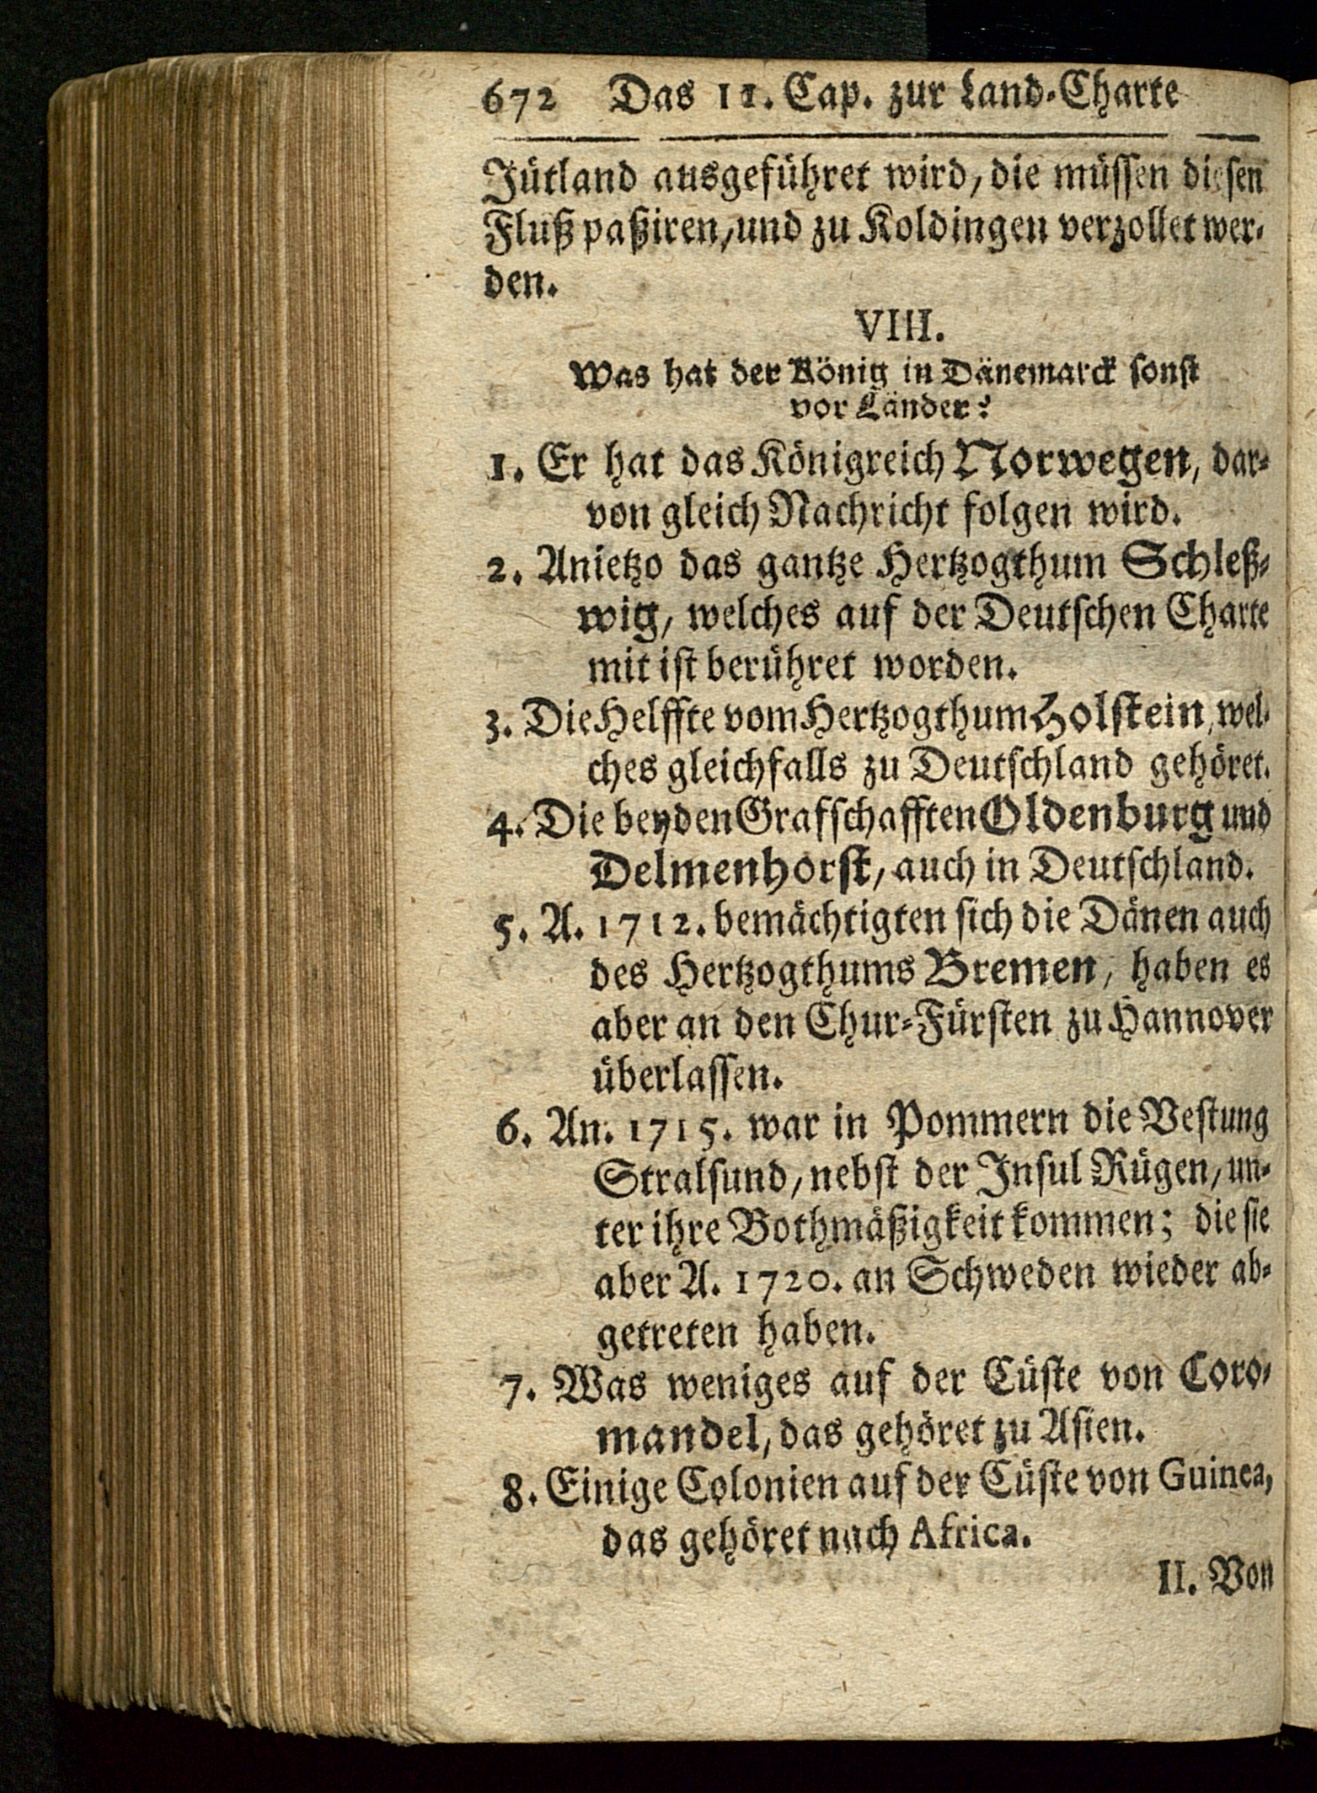 672 Das 11. Cap. zur Land-Charte
Jütland ausgeführet wird, die müssen diesen
Fluß paßiren, und zu Koldingen verzollet wer-
den.
VIII.
Was hat der König in Dänemarck sonst
vor Länder?
1. Er hat das Königreich Norwegen, dar-
von gleich Nachricht folgen wird.
2. Anietzo das gantze Hertzogthum Schleß-
wig, welches auf der Deutschen Charte
mit ist berühret worden.
3. Die Helffte vom Hertzogthum Holstein, wel-
ches gleichfalls zu Deutschland gehöret.
4. Die beyden Grafschafften Oldenburg und
Delmenhorst, auch in Deutschland.
5. A. 1712. bemächtigten sich die Dänen auch
des Hertzogthums Bremen, haben es
aber an den Chur-Fürsten zu Hannover
überlassen.
6. An. 1715. war in Pommern die Vestung
Stralsund, nebst der Insul Rügen, un-
ter ihre Bothmäßigkeit kommen; die sie
aber A. 1720. an Schweden wieder ab-
getreten haben.
7. Was weniges auf der Cüste von Coro-
mandel, das gehöret zu Asien.
8. Einige Colonien auf der Cüste von Guinea,
das gehöret nach Africa.
II. Von